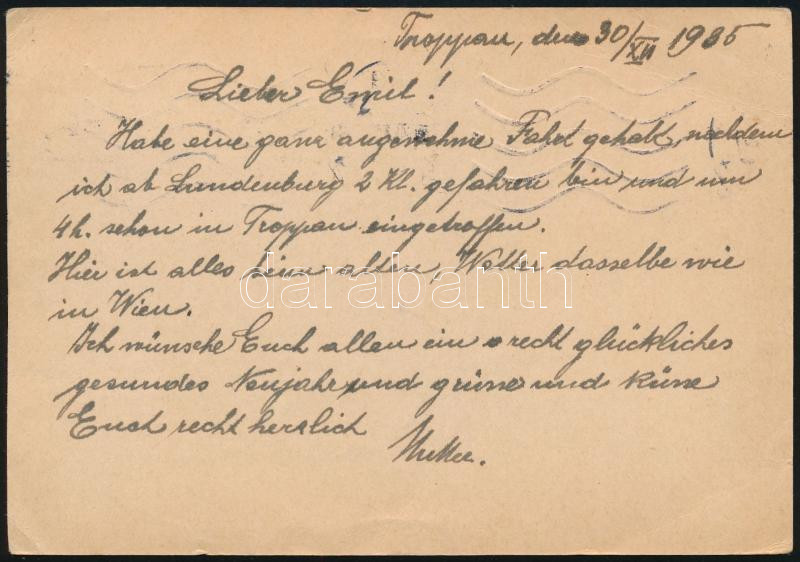 Troppau, den 30/XII 1935
Lieber Emil!
Habe eine ganz angenehme Fahrt gehabt, nachdem
ich ab Lundenburg 2 Kl. gefahren bin und um
4h. schon in Troppau eingetroffen.
Hier ist alles beim alten, Wetter dasselbe wie
in Wien.
Ich wünsche Euch allen ein recht glückliches
gesundes Neujahr und grüsse und küsse
Euch recht herzlich
Mutter.
darabanth